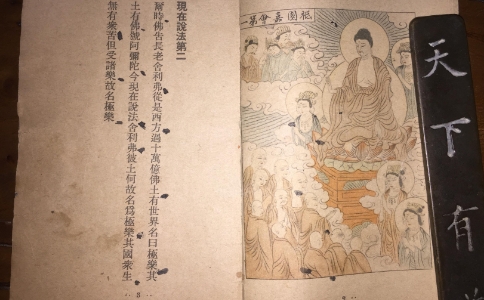 天下有
祇園嘉會第一
現在說法第二
爾時佛告長老舍利弗從是西方過十萬億佛土有世界名曰極樂其
土有佛號阿彌陀今現在說法舍利弗彼土何故名為極樂其國衆生
無有衆苦但受諸樂故名極樂